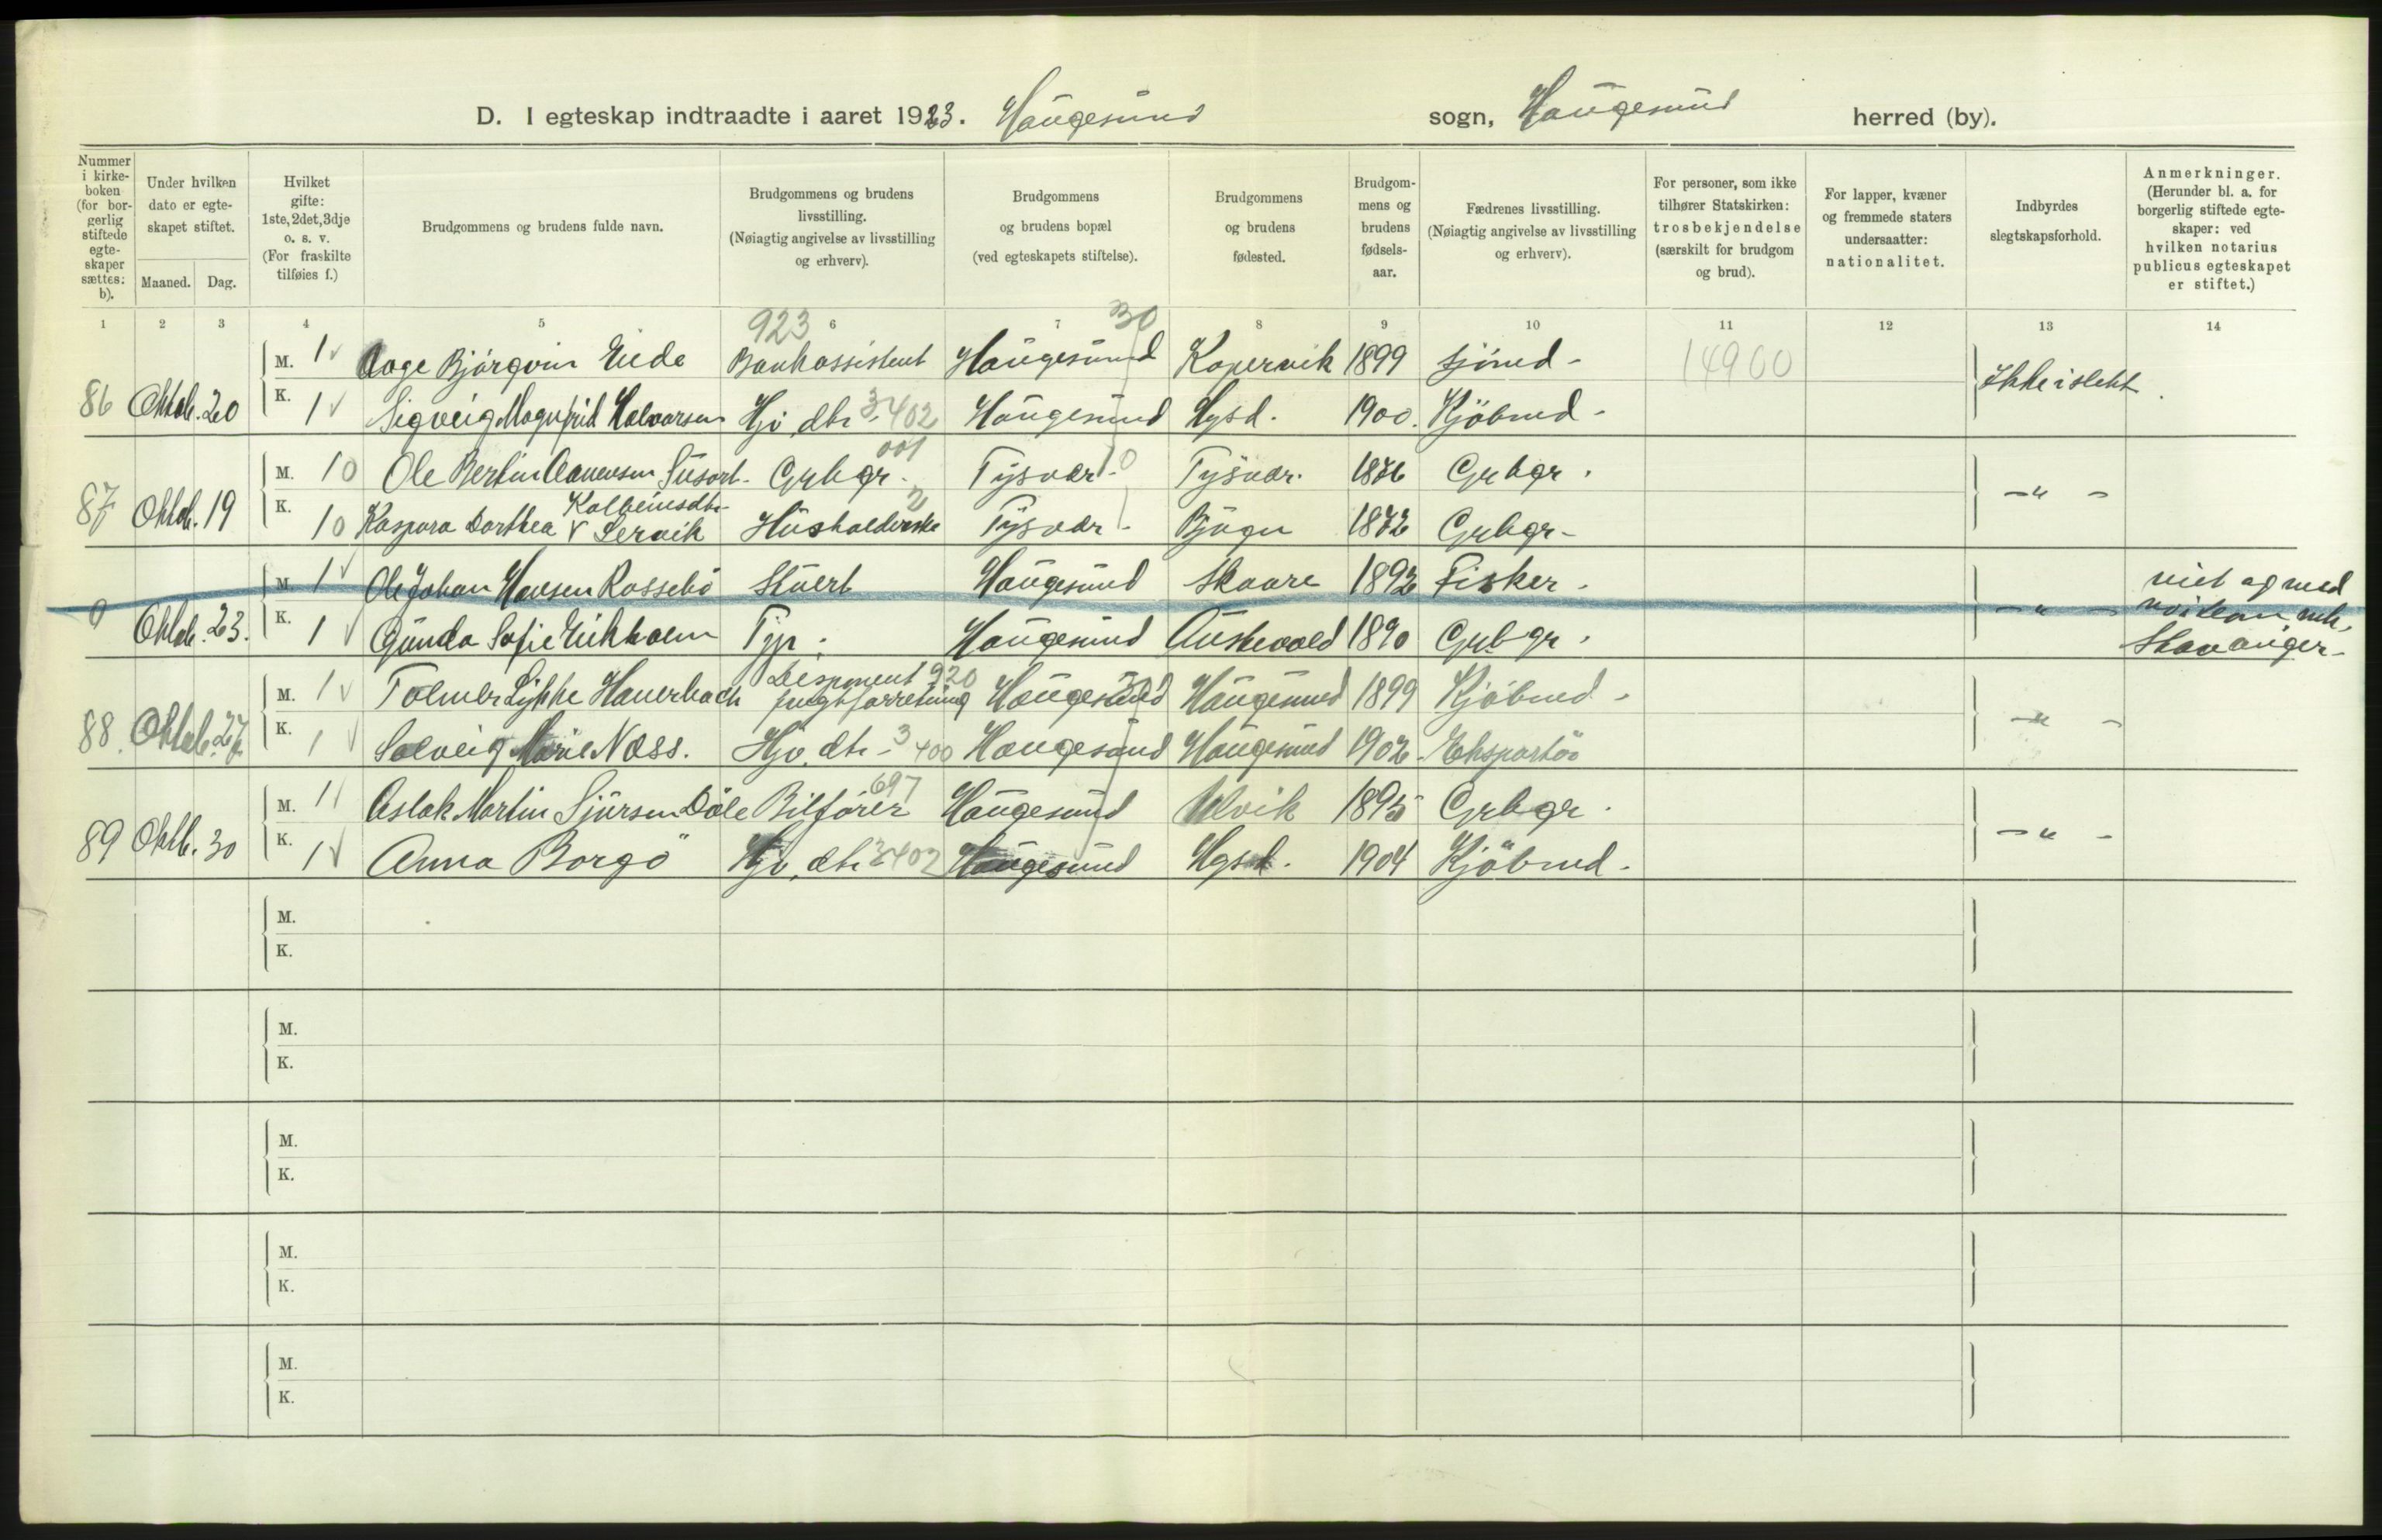 D. I egteskap indtraadte i aaret 1923. Haugesund sogn, Haugesund herred (by).
Nummer i kirkeboken (for borgerlig stiftede egteskaper sættes: b).
Under hvilken dato er egteskapet stiftet.
Maaned. Dag.
Hvilket gifte: 1ste, 2det, 3dje o. s. v. (For fraskilte tilføies f.)
Brudgommens og brudens fulde navn.
Brudgommens og brudens livsstilling. (Nøiagtig angivelse av livsstilling og erhverv).
Brudgommens og brudens bopæl (ved egteskapets stiftelse).
Brudgommens og brudens fødested.
Brudgommens og brudens fødselsaar.
Fædrenes livsstilling. (Nøiagtig angivelse av livsstilling og erhverv).
For personer, som ikke tilhører Statskirken: trosbekjendelse (særskilt for brudgom og brud).
For lapper, kvæner og fremmede staters undersaatter: nationalitet.
Indbyrdes slegtskapsforhold.
Anmerkninger. (Herunder bl. a. for borgerlig stiftede egteskaper: ved hvilken notarius publicus egteskapet er stiftet.)
1 2 3 4 5 6 7 8 9 10 11 12 13 14
923 30
M. 1 Aage Bjørgvin Eide Bankassistent Haugesund Kopervik 1899 14900
86 Oktob. 20 Ikke i slekt
K. 1 Sigveig Magnfrid Halvorsen Hj. dtr. 3402 Haugesund Hgsd. 1900. Kjøbmd.
001
M. 10 Ole Bertin Susort Grbgr. Tysvær. 0 Tysvær. 1876 Grbgr.
87 Oktob. 19 - " -
K. 10 Kaspara Dorthea Kolbeinsdtr. Lervik Husholderske 2 Tysvær. 1872 Grbgr.
M. 1 Ole Johan Hansen Rossebø Stuert Haugesund Skaare 1892 Fisker.
0 Oktob. 23. - " -
K. 1 Gunda Sofie Eikholm Tjp. Haugesund Austevold 1890 Grbgr.
viet og med
Stavanger
M. 1 Tolmer Lykke Hauerbach Disponent 920 Haugesund Haugesund 1899 Kjøbmd.
88. Oktob. 27. - " -
K. 1 Solveig Marie Næss. Hjv. dtr. 3400 Haugesund Haugesund 1902. Eksportør
697
M. 1 Aslak Martin Sjursen Dåle Bilfører Haugesund Ulvik 1895 Grbgr.
89 Oktb. 30 - " -
K. 1 Anna Borgø Hjv. dtr. 3402 Haugesund Hgsd. 1904 Kjøbmd.
M.
K.
M.
K.
M.
K.
M.
K.
M.
K.